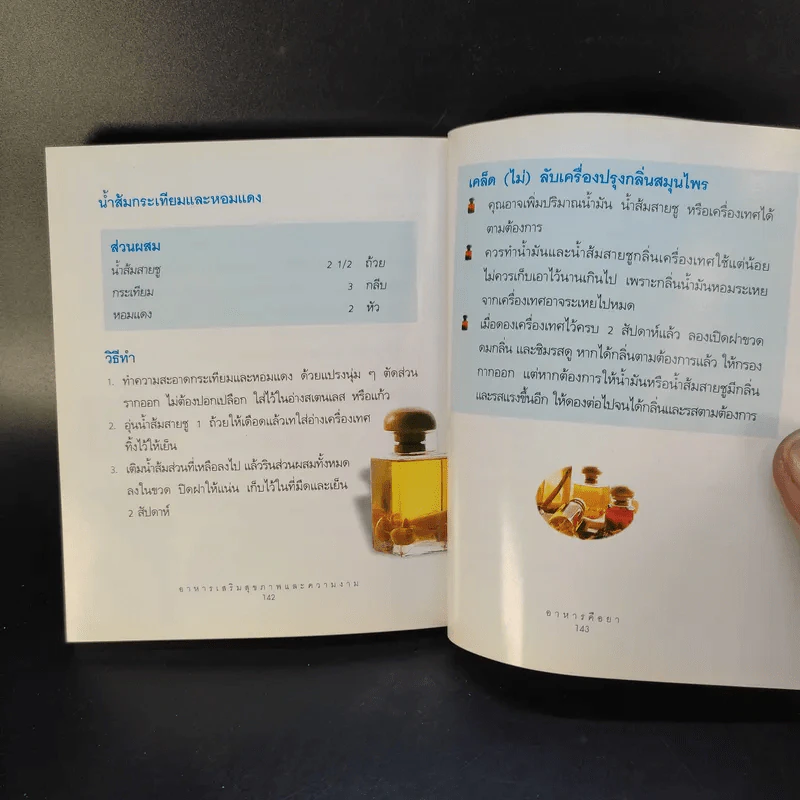 น้ำส้มกระเทียมและหอมแดง
ส่วนผสม
น้ำส้มสายชู 2 1/2 ถ้วย
กระเทียม 3 กลีบ
หอมแดง 2 หัว
วิธีทำ
1. ทำความสะอาดกระเทียมและหอมแดง ด้วยแปรงนุ่ม ๆ ตัดส่วน
รากออก ไม่ต้องปอกเปลือก ใส่ไว้ในอ่างสเตนเลส หรือแก้ว
2. อุ่นน้ำส้มสายชู 1 ถ้วยให้เดือดแล้วเทใส่อ่างเครื่องเทศ
ทิ้งไว้ให้เย็น
3. เติมน้ำส้มส่วนที่เหลือลงไป แล้วรินส่วนผสมทั้งหมด
ลงในขวด ปิดฝาให้แน่น เก็บไว้ในที่มืดและเย็น
2 สัปดาห์
อาหารเสริมสุขภาพและความงาม
142
เคล็ด (ไม่) ลับเครื่องปรุงกลิ่นสมุนไพร
คุณอาจเพิ่มปริมาณน้ำมัน น้ำส้มสายชู หรือเครื่องเทศได้
ตามต้องการ
ควรทำน้ำมันและน้ำส้มสายชูกลิ่นเครื่องเทศใช้แต่น้อย
ไม่ควรเก็บเอาไว้นานเกินไป เพราะกลิ่นน้ำมันหอมระเหย
จากเครื่องเทศอาจระเหยไปหมด
เมื่อดองเครื่องเทศไว้ครบ 2 สัปดาห์แล้ว ลองเปิดฝาขวด
ดมกลิ่น และชิมรสดู หากได้กลิ่นตามต้องการแล้ว ให้กรอง
กากออก แต่หากต้องการให้น้ำมันหรือน้ำส้มสายชูมีกลิ่น
และรสแรงขึ้นอีก ให้ดองต่อไปจนได้กลิ่นและรสตามต้องการ
อาหารคือยา
143